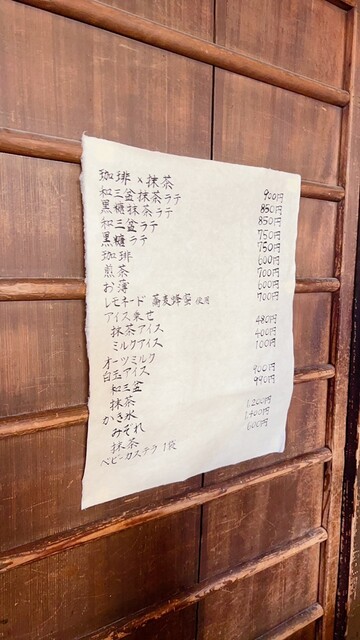 珈琲×抹茶 900円
和三盆抹茶ラテ 850円
黒糖抹茶ラテ 850円
和三盆ラテ 750円
黒糖ラテ 750円
珈琲 600円
煎茶 700円
お薄 600円
レモネード 蕎麦蜂蜜使用 700円
アイス乗せ
抹茶アイス 480円
ミルクアイス 400円
オーツミルク 100円
白玉アイス
和三盆 900円
抹茶 990円
かき氷
みぞれ 1,200円
抹茶 1,400円
ベビーカステラ 1袋 600円